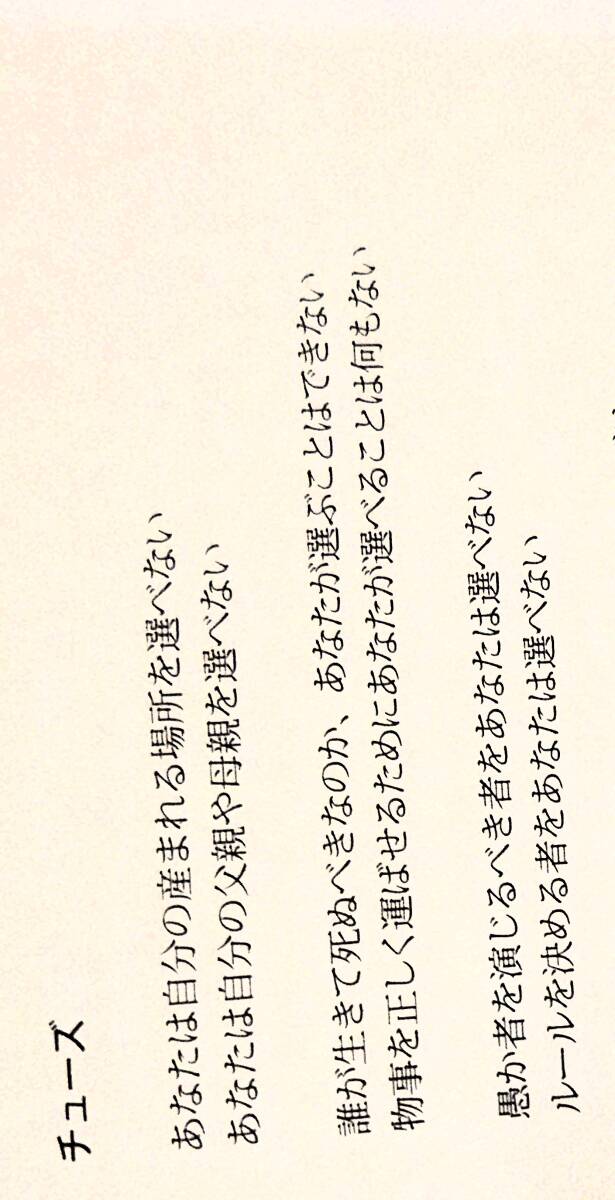 チューズ
あなたは自分の産まれる場所を選べない
あなたは自分の父親や母親を選べない
誰が生きて死ぬべきなのか、あなたが選ぶことはできない
物事を正しく運ばせるためにあなたが選べることは何もない
愚か者を演じるべき者をあなたは選べない
ルールを決める者をあなたは選べない